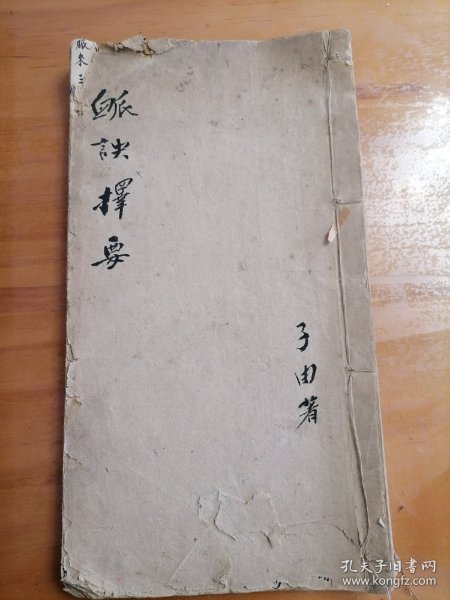 䘑訣擇要
子由著
孔夫子旧书网
www.kongfz.com